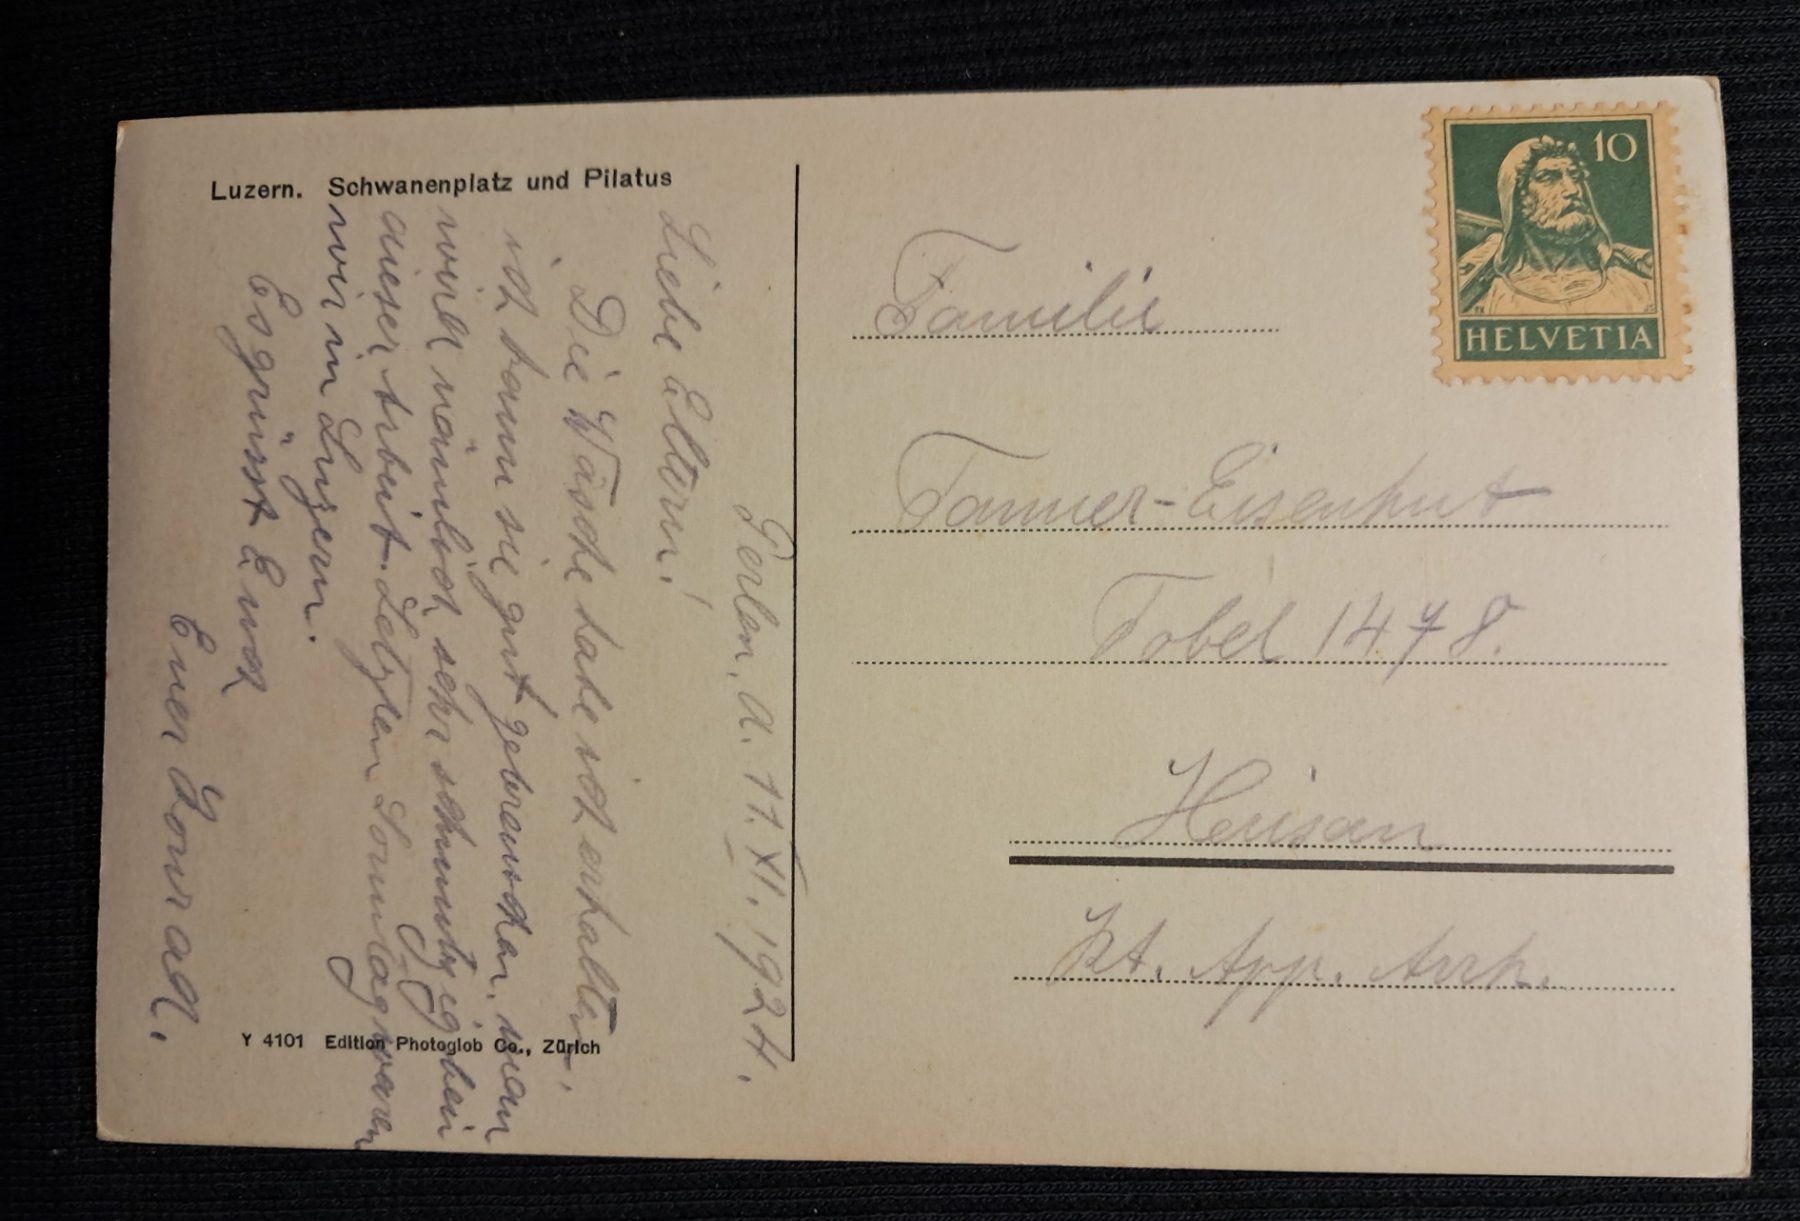 Luzern. Schwanenplatz und Pilatus
Perlen, d. 11. XI. 1924.
Liebe Eltern!
Die Wäsche habe ich erhalten,
ich kann sie gut gebrauchen, man
wird nämlich sehr schmutzig bei
dieser Arbeit. Letzten Sonntag waren
wir in Luzern.
Es grüsst Euch
Euer Konrad.
Y 4101 Edition Photoglob Co., Zürich
10
HELVETIA
Familie
Tanner-Eisenhut
Tobel 1478.
Herisau
Kt. App. Arrh.